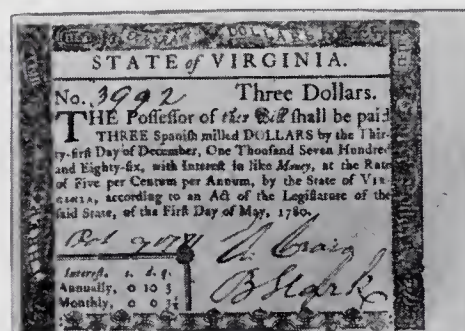 DOLLARS
STATE of VIRGINIA.
No. 3992 Three Dollars.
THE Possessor of this Bill shall be paid
THREE Spanish milled DOLLARS by the Thir-
ty-first Day of December, One Thousand Seven Hundred
and Eighty-six, with Interest in like Money, at the Rate
of Five per Centum per Annum, by the State of VIR-
GINIA, according to an Act of the Legislature of the
said State, of the First Day of May, 1780.
Craig
B Stark
Interest. s. d. q.
Annually, 0 10 3
Monthly, 0 0 3¼
THREE